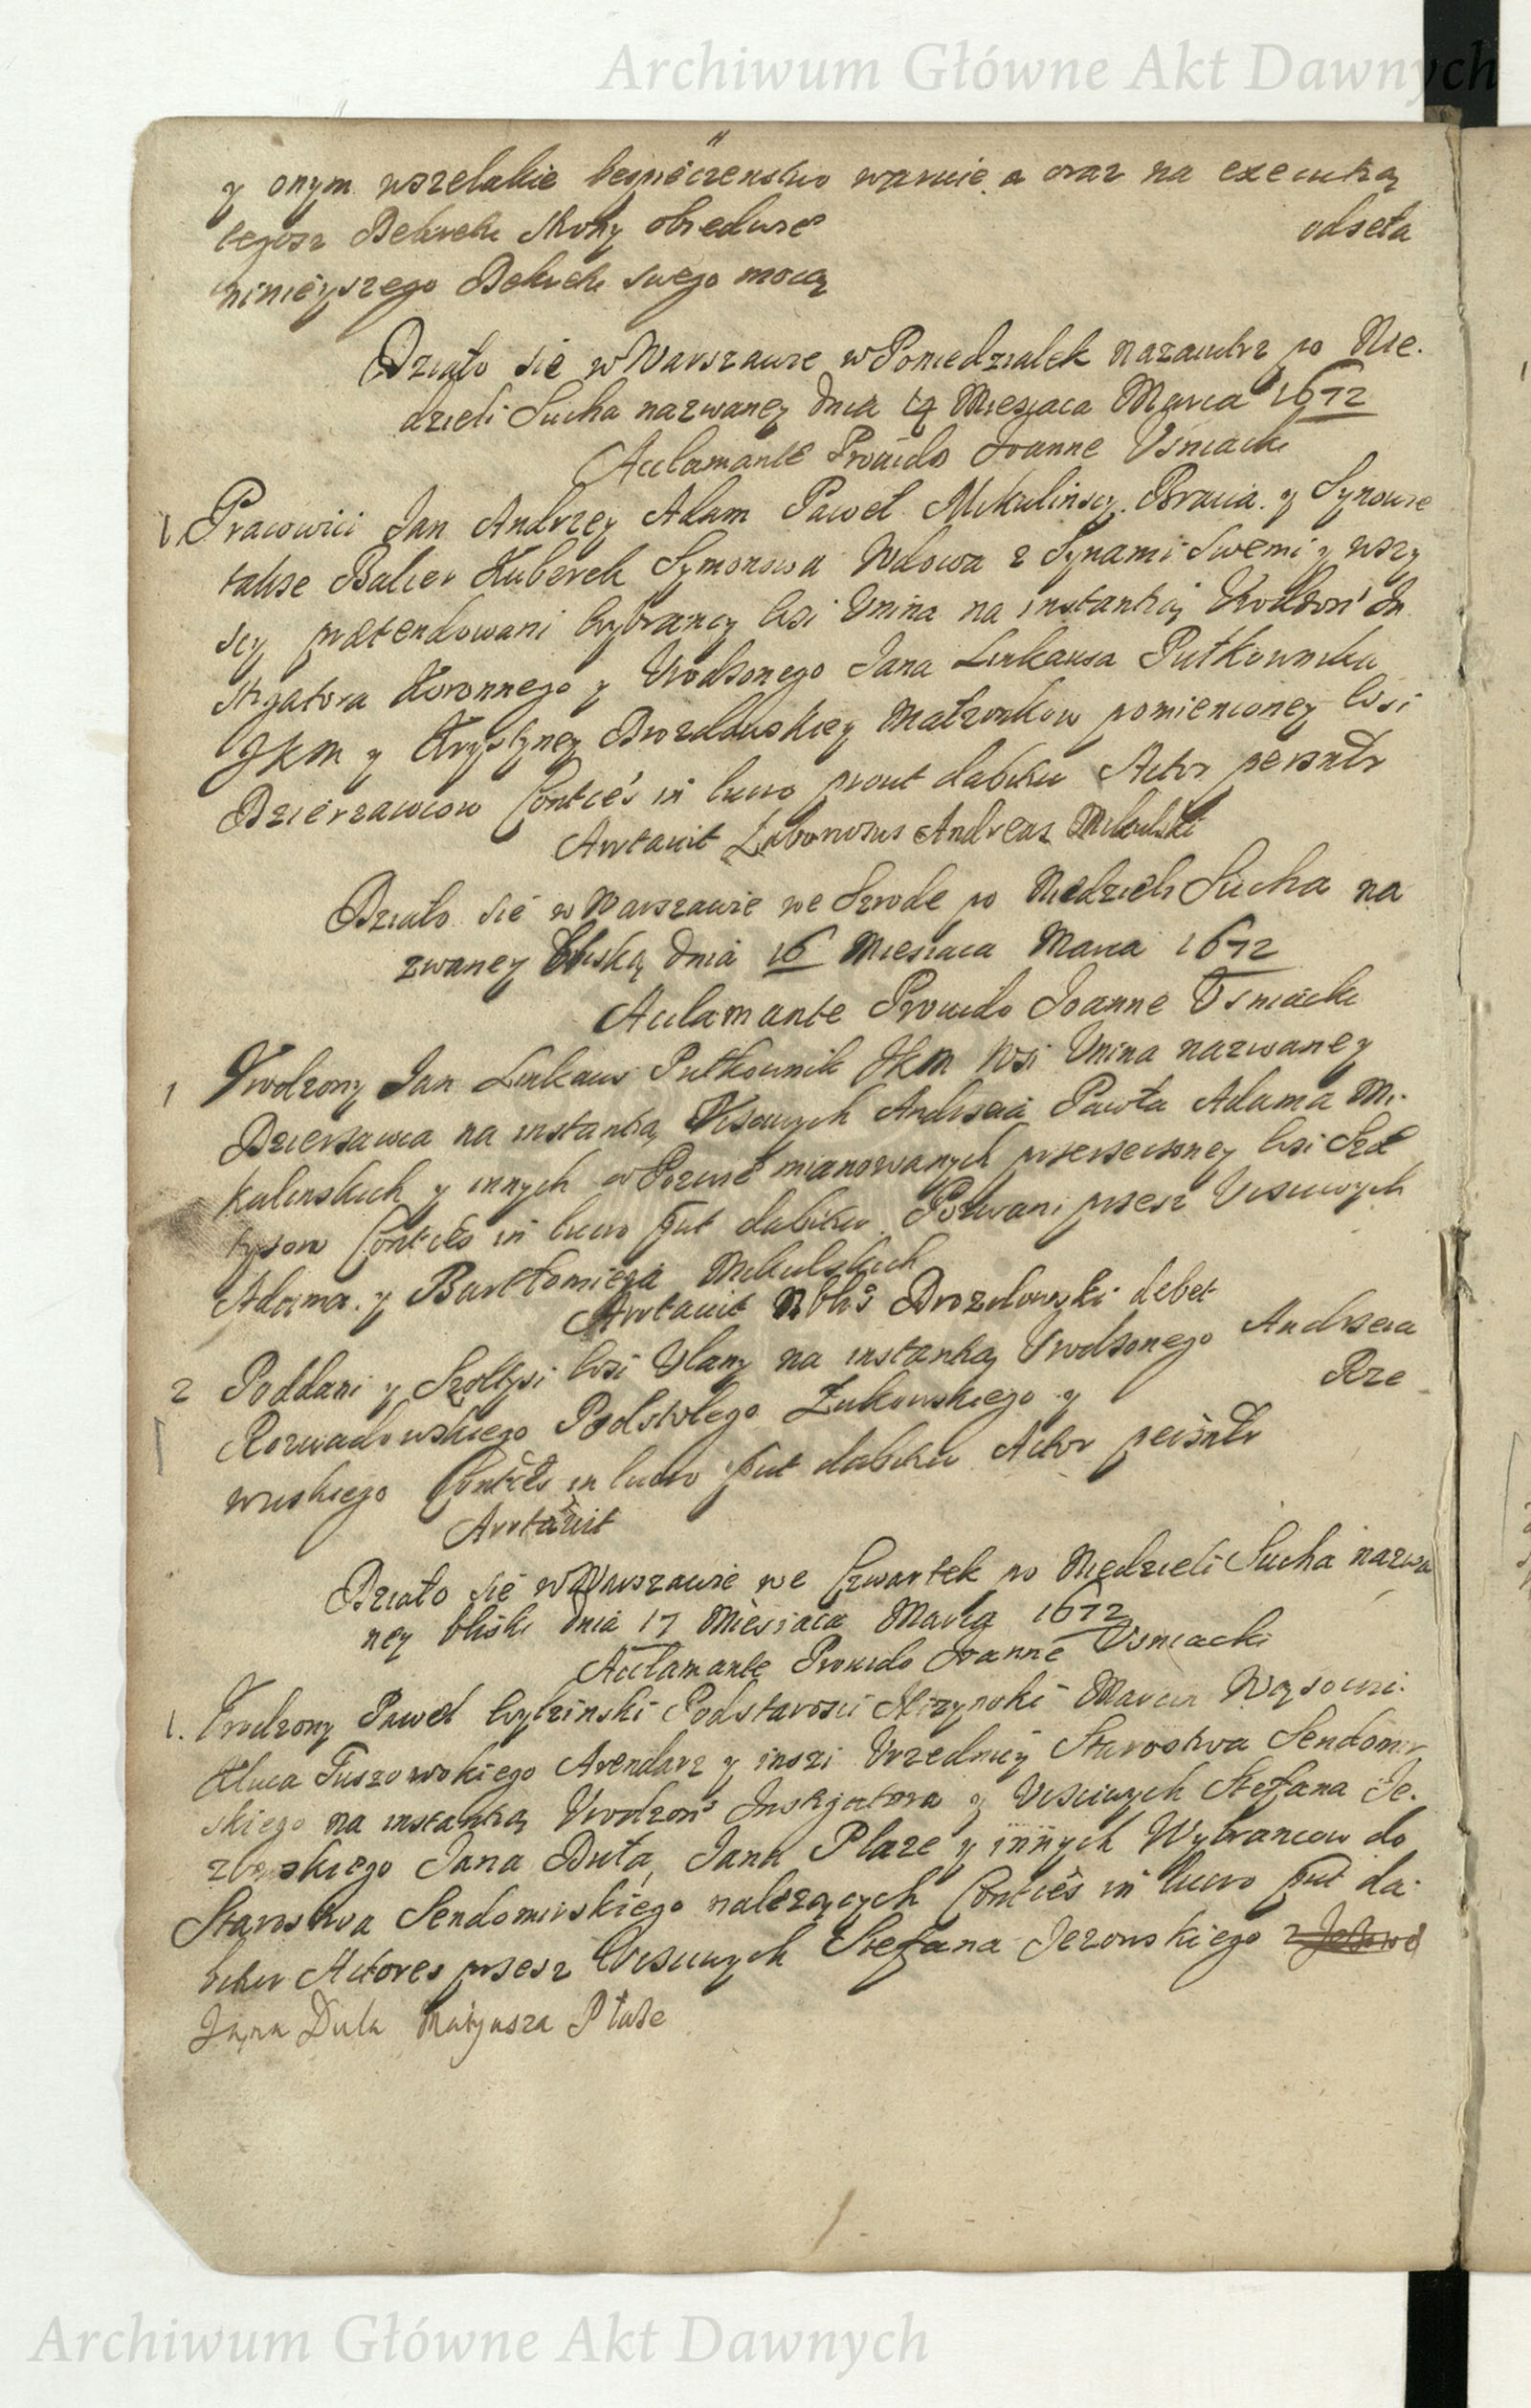 Archiwum Główne Akt Dawnych
y onym wszelakie bespieczenstwo warnie a oraz na executią
tegosz Dekretu Strony obiedwie odseła
ninieyszego Dekretu swego mocą
Działo sie w Warszawie w Poniedziałek nazaiutrz po Nie-
dzieli Sucha nazwaney dnia 14 Miesiaca Marca 1672
Acclamante Prouido Joanne Vsniacki
1. Pracowici Jan Andrzey Adam Paweł Mikulinscy Bracia y Synowie
takze Balcer Kuberek Symonowa Wdowa z Synami Swemi y wszy
scy prætendowani Wybrancy Wsi Unina na instantią Vrodzon In
stigatora Koronnego y Vrodzonego Jana Linkausa Pułkownika
JKM y Krystyney Drozdowskiey Małzonkow pomienioney Wsi
Dzierzawcow Conties in lucro prout dabitur Actor personlr
Arrtauit Laboriosus Andreas Mikulski
Działo sie w Warszawie we Srode po Niedzieli Sucha na
zwaney bliską dnia 16 Miesiaca Marca 1672
Acclamante Prouido Joanne Vsniacki
1 Vrodzony Jan Linkaus Pułkownik JKM Wsi Unina nazwaney
Dzierzawca na instantią Vczciwych Andrzeia Pawła Adama Mi-
kulinskich y innych w Pozwie mianowanych przerzeczoney Wsi Szoł
tysow Conties in lucro put dabitur Pozwani przesz Vczciwych
Adama y Bartłomieia Mikulskich
Arrtauit Nblis Drozdowski debet
2 Poddani y Szołtysi Wsi Ulany na instantią Vrodzonego Andrzeia
Rozwadowskiego Podstolego Zukowskiego y Rze
wuskiego Conties in lucro put dabitur Actor personlr
Arrtauit
Działo sie w Warszawie we Czwartek po Niedzieli Sucha nazwa
ney bliski dnia 17 Miesiaca Marca 1672
Acclamante Prouido Joanne Vsniacki
1. Vrodzony Paweł Podstarosci Marcin Wysocki
Klucza Tuszowskiego Arendarz y inszi Vrzednicy Starostwa Sendomir
skiego na instantią Vrodzons Instigatora y Vczciwych Stefana Je-
zowskiego Jana Duła, Jana Płaze y innych Wybrancow do
Starostwa Sendomirskiego nalezących Conties in lucro put da-
bitur Actores przesz Vczciwych Stefana Jezowskiego
Jana Duła Matyusza Płaze
Archiwum Główne Akt Dawnych